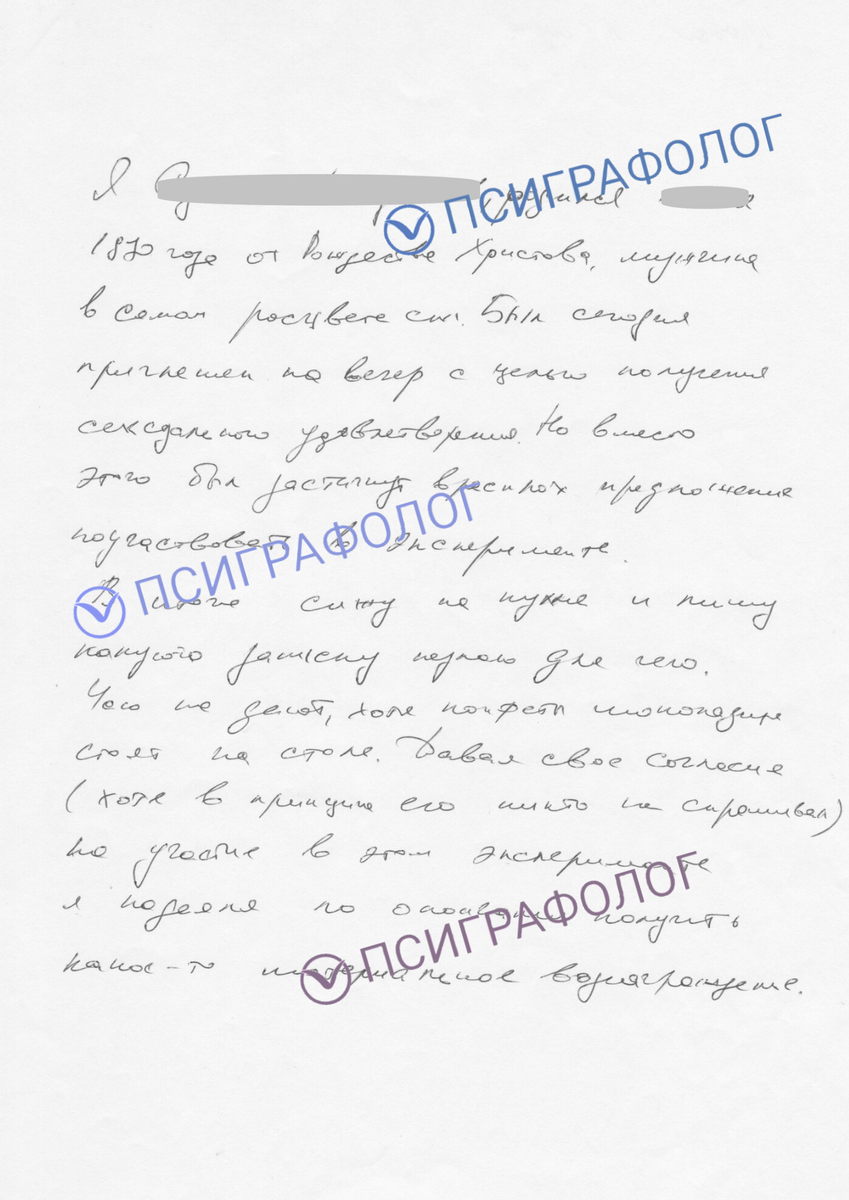 Я родился
ПСИГРАФОЛОГ
1870 года от Рождества Христова, мужчина
в самом росцвете сил. Был сегодня
приглашен на вечер с целью получения
сексуального удовлетворения. Но вместо
этого был застигнут врасплох предложение
поучаствовать в эксперименте.
ПСИГРАФОЛОГ
В итоге сижу на кухне и пишу
какуюто записку незнаю для чего.
Чаю не делают, хотя конфеты шоколадные
стоят на столе. Давая свое согласие
(хотя в принципе его никто не спрашивал)
на участие в этом эксперименте
я надеялся по окончании получить
ПСИГРАФОЛОГ
какое-то материальное вознаграждение.